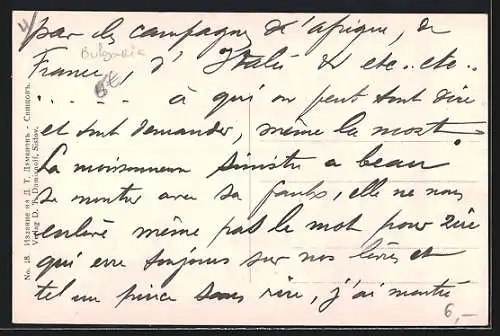 4/
par les campagnes d'afrique, de
Bulgarie
France, d'Italie & etc..etc..
6€
. . . . . . à qui on peut tout dire
et tout demander, même la mort!
La moissonneuse sinistre a beau
se montrer avec sa faulx, elle ne nous
enlève même pas le mot pour rire
qui erre toujours sur nos lèvres et
tel un pince sans rire, j'ai montré
6,-
No. 18. Издание на Д. Т. Дамяновъ - Свищовъ.
Verlag D. T. Damianoff, Sistov.